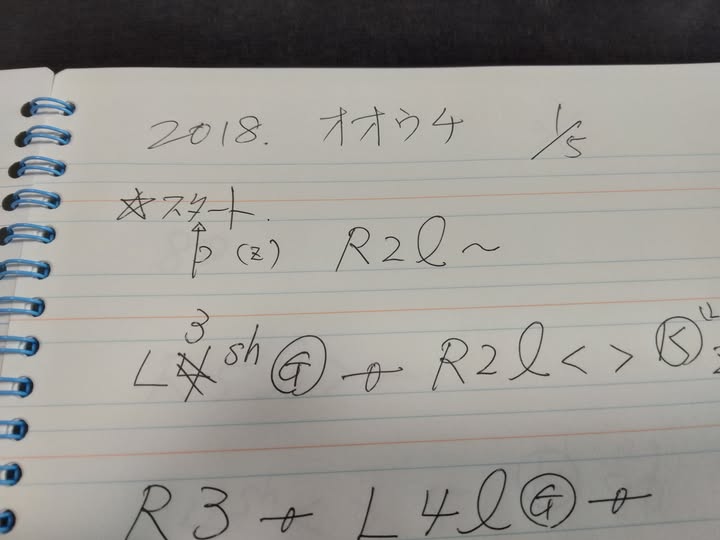 2018. オオウチ 1/5
☆スタート.
↑ (z) R2l~
L3 sh Ⓖ R2l < > Ⓚ
R3 L4l Ⓖ